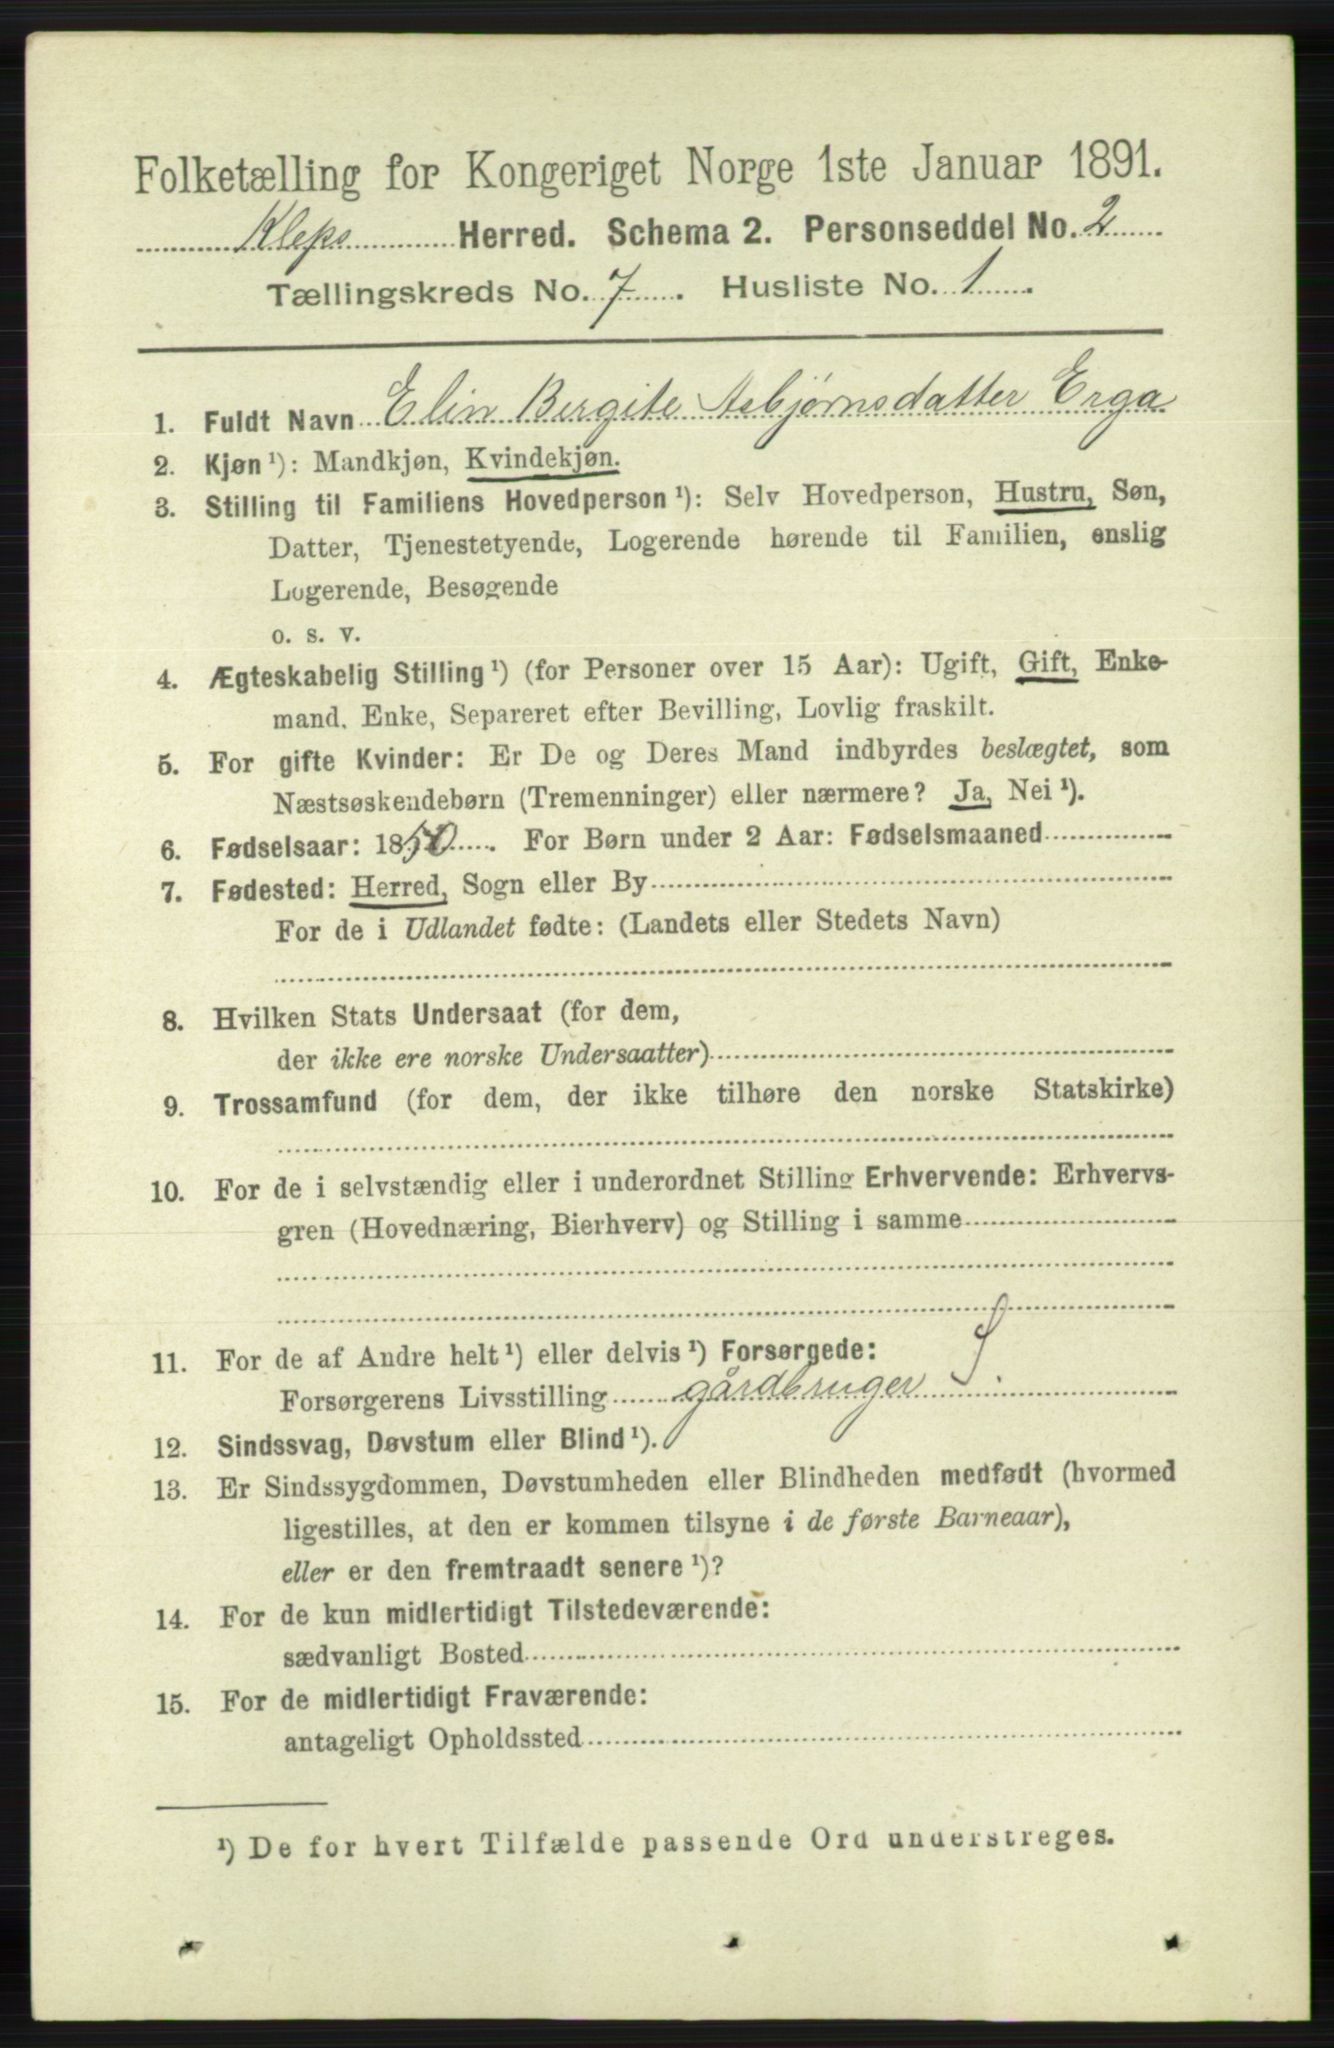 Folketælling for Kongeriget Norge 1ste Januar 1891.
Kleps Herred. Schema 2. Personseddel No. 2
Tællingskreds No. 7. Husliste No. 1.
1. Fuldt Navn Elin Bergite Asbjørnsdatter Erga
2. Kjøn¹): Mandkjøn, Kvindekjøn.
3. Stilling til Familiens Hovedperson¹): Selv Hovedperson, Hustru, Søn,
Datter, Tjenestetyende, Logerende hørende til Familien, enslig
Logerende, Besøgende
o. s. v.
4. Ægteskabelig Stilling¹) (for Personer over 15 Aar): Ugift, Gift, Enke-
mand. Enke, Separeret efter Bevilling, Lovlig fraskilt.
5. For gifte Kvinder: Er De og Deres Mand indbyrdes beslægtet, som
Næstsøskendebørn (Tremenninger) eller nærmere? Ja, Nei¹).
6. Fødselsaar: 1850. For Børn under 2 Aar: Fødselsmaaned
7. Fødested: Herred, Sogn eller By
For de i Udlandet fødte: (Landets eller Stedets Navn)
8. Hvilken Stats Undersaat (for dem,
der ikke ere norske Undersaatter)
9. Trossamfund (for dem, der ikke tilhøre den norske Statskirke)
10. For de i selvstændig eller i underordnet Stilling Erhvervende: Erhvervs-
gren (Hovednæring, Bierhverv) og Stilling i samme
11. For de af Andre helt¹) eller delvis¹) Forsørgede:
Forsørgerens Livsstilling gårdbruger S.
12. Sindssvag, Døvstum eller Blind¹).
13. Er Sindssygdommen, Døvstumheden eller Blindheden medfødt (hvormed
ligestilles, at den er kommen tilsyne i de første Barneaar),
eller er den fremtraadt senere¹)?
14. For de kun midlertidigt Tilstedeværende:
sædvanligt Bosted
15. For de midlertidigt Fraværende:
antageligt Opholdssted
¹) De for hvert Tilfælde passende Ord understreges.